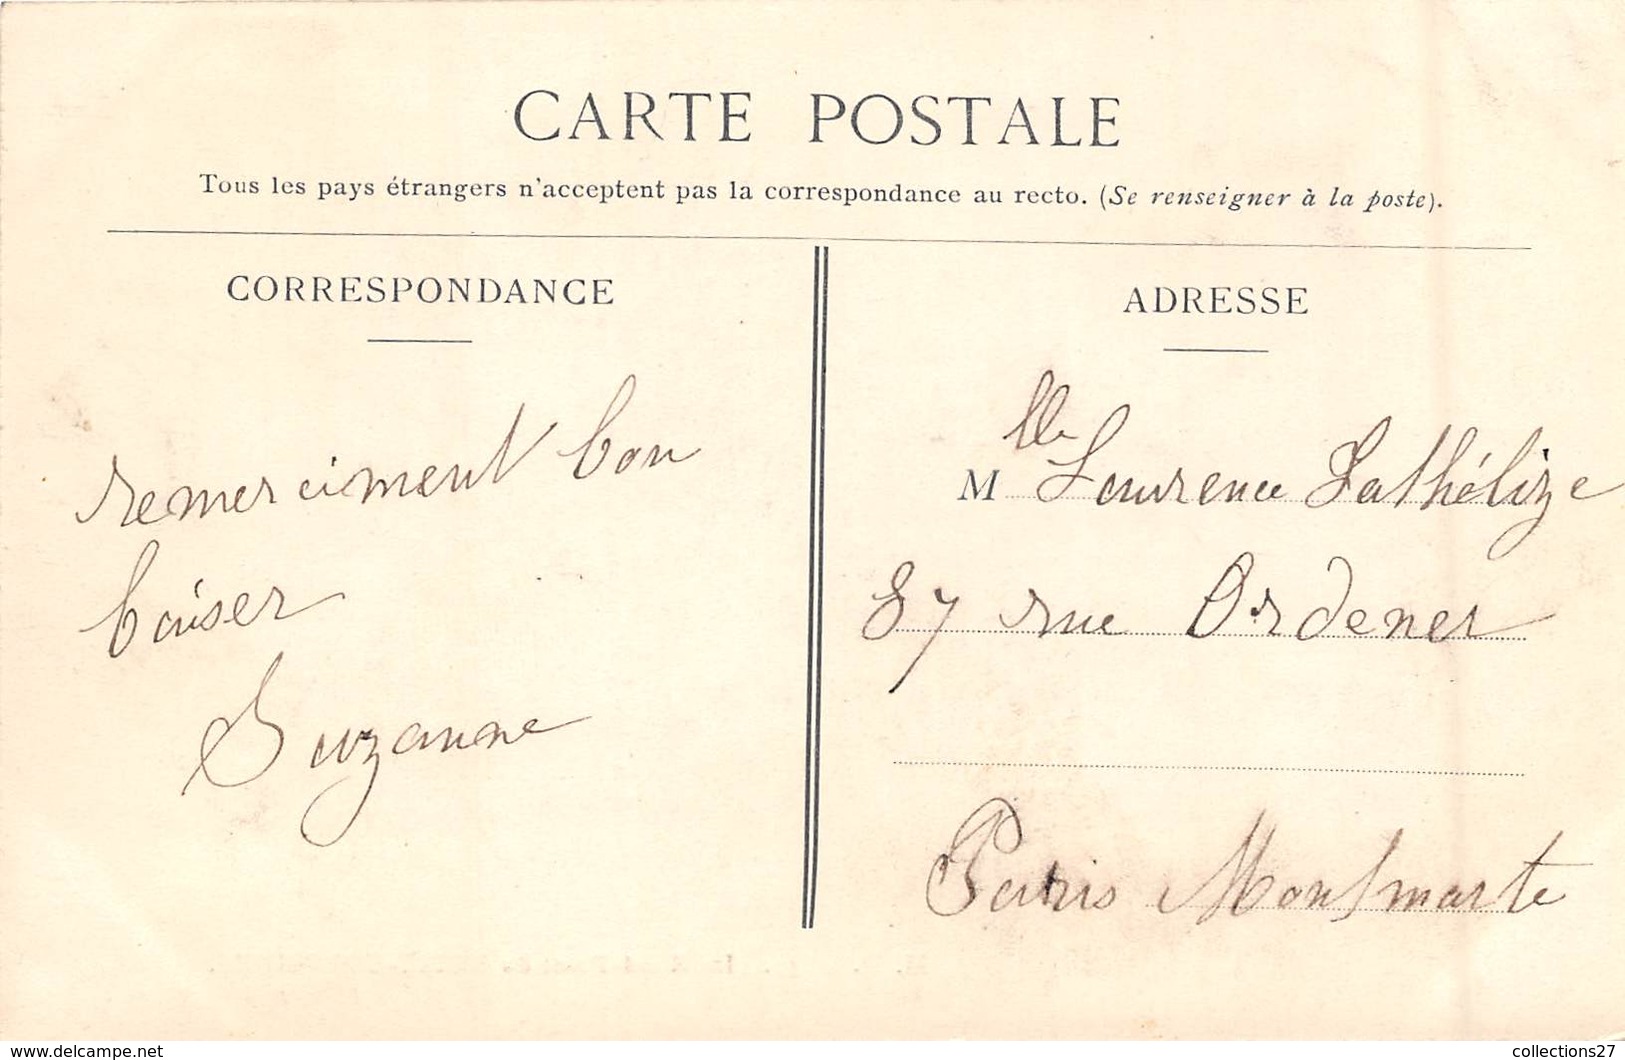 CARTE POSTALE
Tous les pays étrangers n'acceptent pas la correspondance au recto. (Se renseigner à la poste).
CORRESPONDANCE
remerciment bon
baiser
Suzanne
ADRESSE
Mlle Laurence Lathélize
87 rue Ordener
Paris Montmarte
collections27